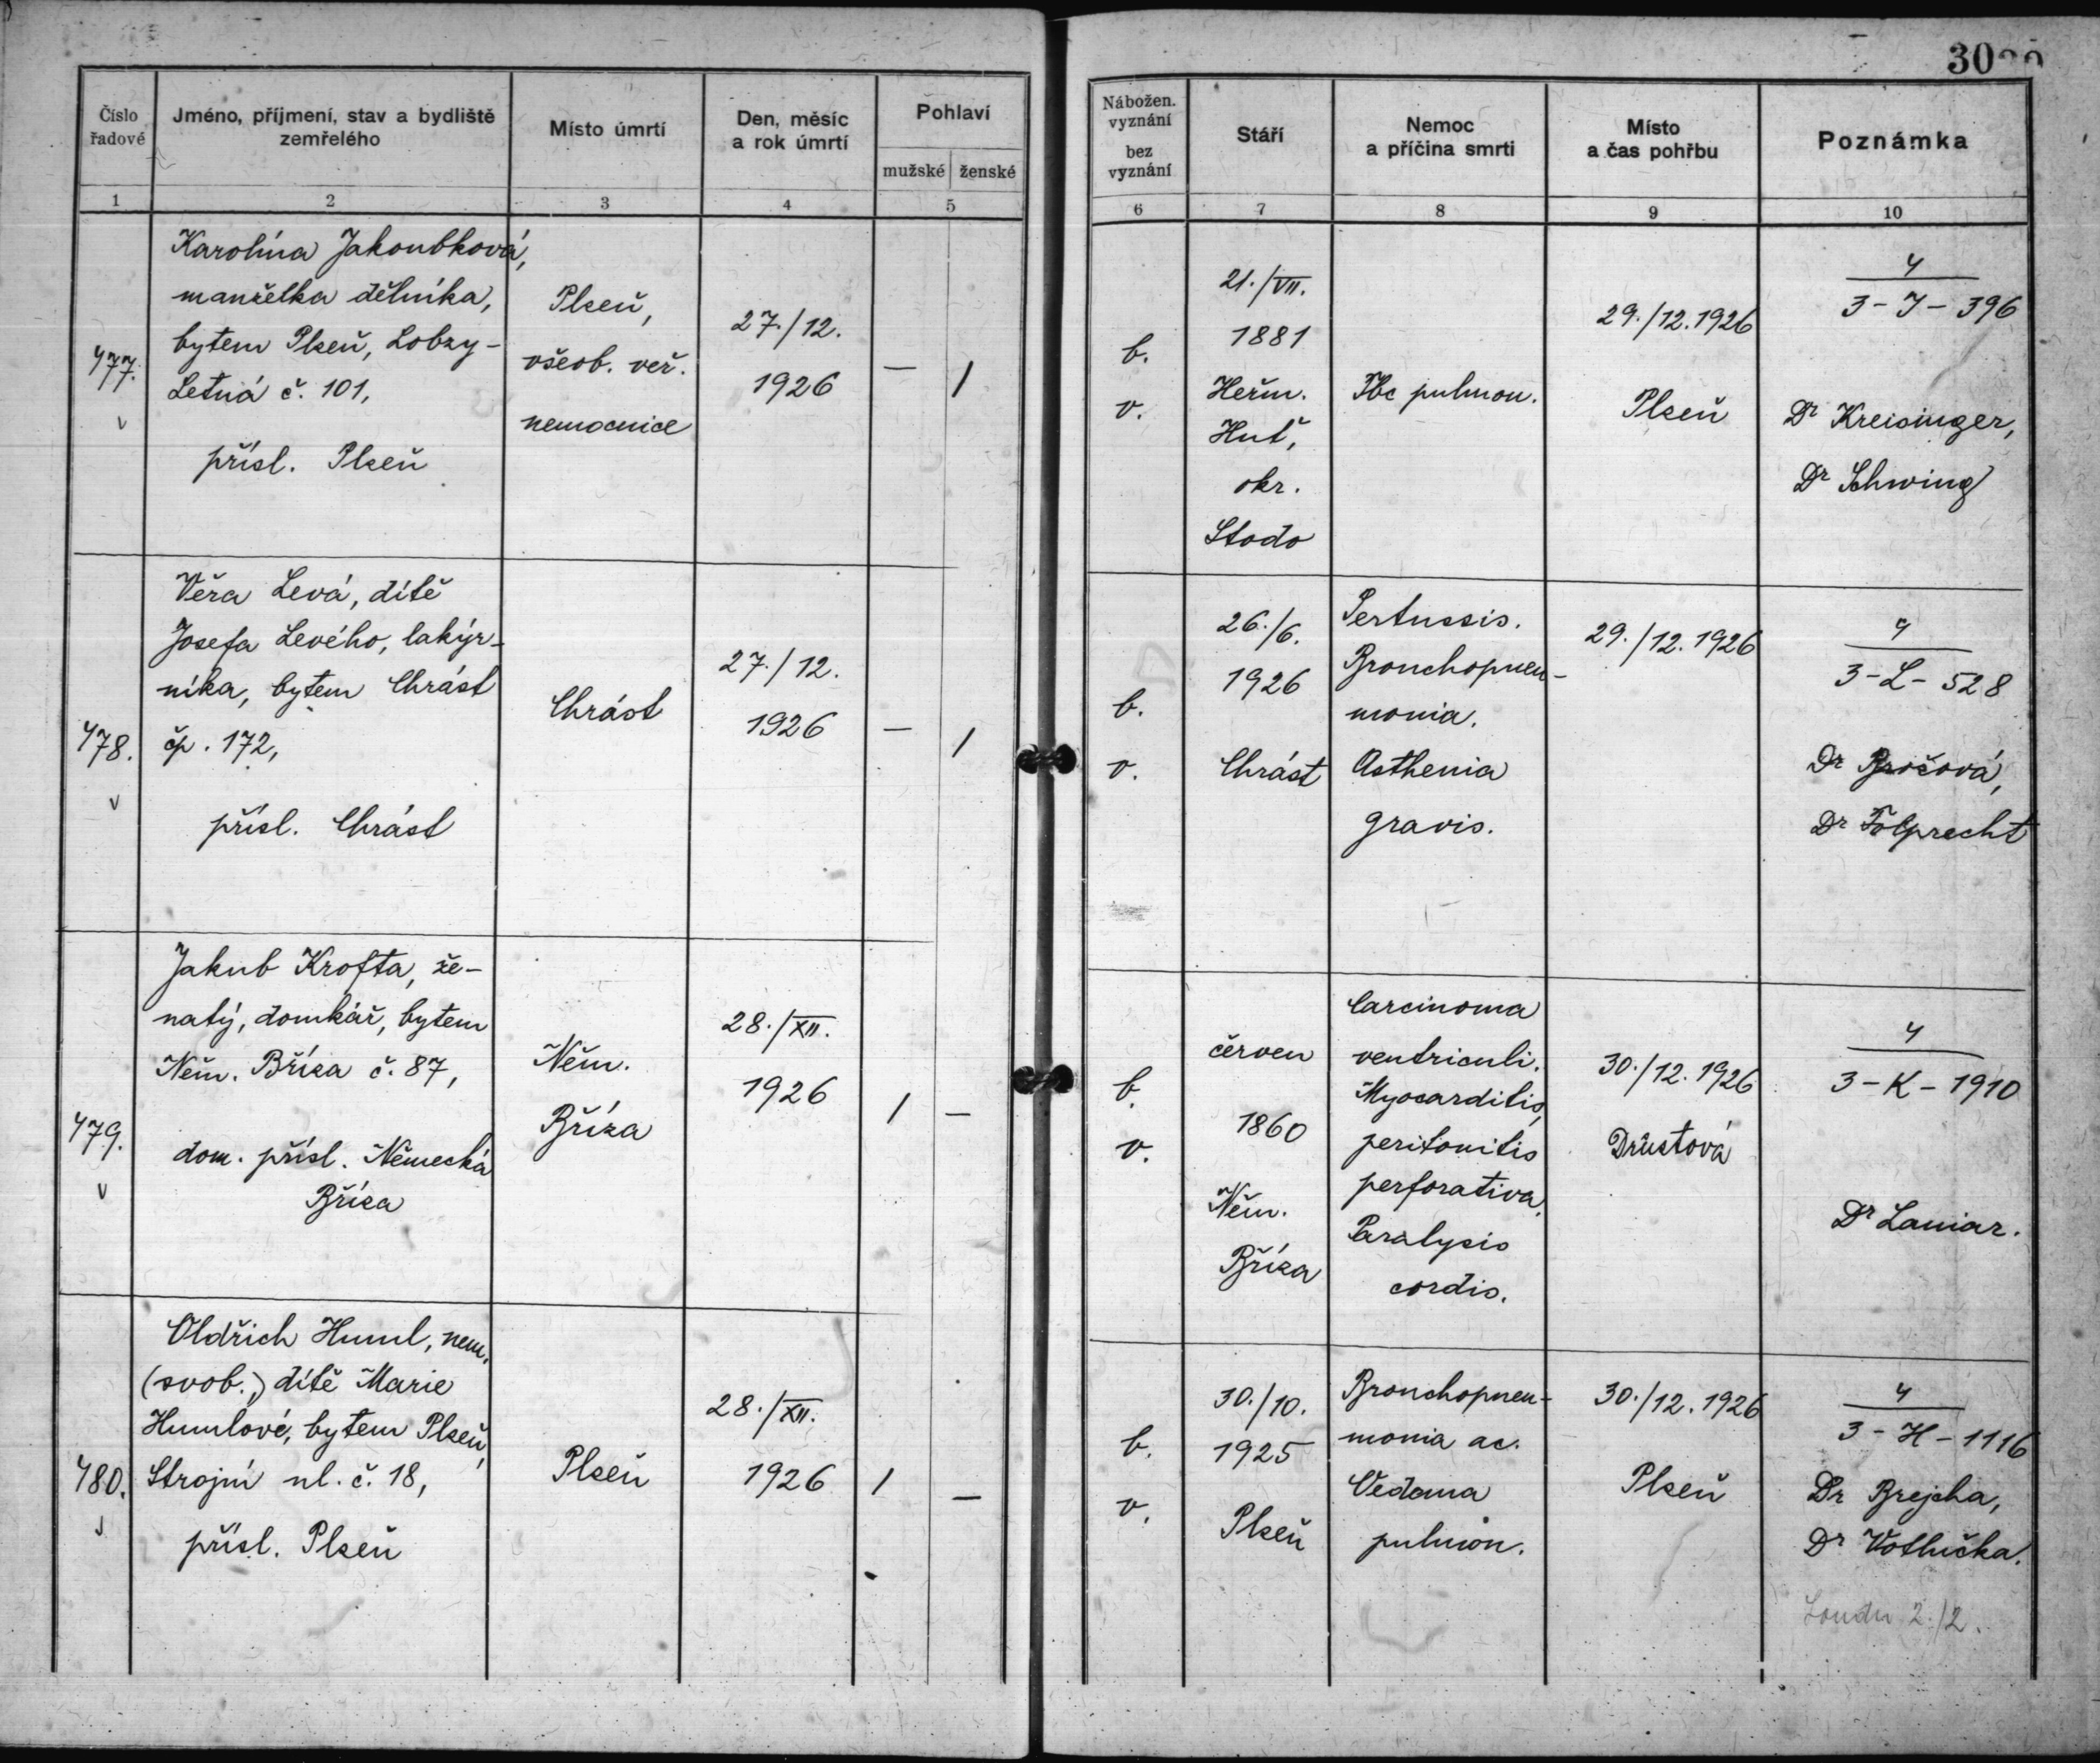 30
Číslo řadové
Jméno, příjmení, stav a bydliště zemřelého
Místo úmrtí
Den, měsíc a rok úmrtí
Pohlaví
mužské
ženské
Nábožen. vyznání
bez vyznání
Stáří
Nemoc a příčina smrti
Místo a čas pohřbu
Poznámka
1
2
3
4
5
6
7
8
9
10
477.
Karolína Jakoubková,
manželka dělníka,
bytem Plzeň, Lobzy-
Letná č. 101,
přísl. Plzeň
Plzeň,
všeob. veř.
nemocnice
27./12.
1926
—
/
b.
v.
21./VII.
1881
Heřm.
Huť,
okr.
Stodo
Tbc pulmon.
29./12.1926
Plzeň
4
3-J-396
Dr Kreisinger,
Dr Schwing
478.
Věra Levá, dítě
Josefa Levého, lakýr-
níka, bytem Chrást
čp. 172,
přísl. Chrást
Chrást
27./12.
1926
—
/
b.
v.
26./6.
1926
Chrást
Pertussis.
Bronchopneu-
monia.
Asthenia
gravis.
29./12.1926
4
3-L-528
Dr
Dr Folprecht
479.
Jakub Krofta, že-
natý, domkář, bytem
Něm. Bříza č. 87,
dom. přísl. Německá
Bříza
Něm.
Bříza
28./XII.
1926
/
—
b.
v.
červen
1860
Něm.
Bříza
Carcinoma
ventriculi.
Myocarditis,
peritonitis
perforativa.
Paralysis
cordis.
30./12.1926
Drůstová
4
3-K-1910
Dr Laniar.
480.
Oldřich Huml, nem.
(svob.) dítě Marie
Humlové, bytem Plzeň,
Strojní ul. č. 18,
přísl. Plzeň
Plzeň
28./XII.
1926
/
—
b.
v.
30./10.
1925
Plzeň
Bronchopneu-
monia ac.
Oedema
pulmon.
30./12.1926
Plzeň
4
3-H-1116
Dr Brejcha,
Dr Votlučka.
2./2.